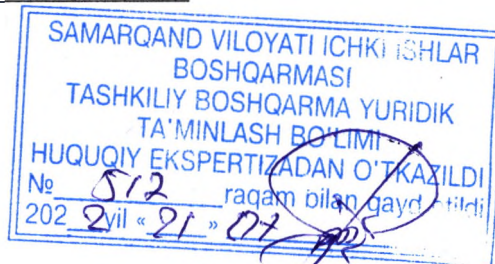 SAMARQAND VILOYATI ICHKI ISHLAR
BOSHQARMASI
TASHKILIY BOSHQARMA YURIDIK
TA'MINLASH BO'LIMI
HUQUQIY EKSPERTIZADAN O'TKAZILDI
№ 512 raqam bilan qayd etildi
2022 yil « 21 » 07